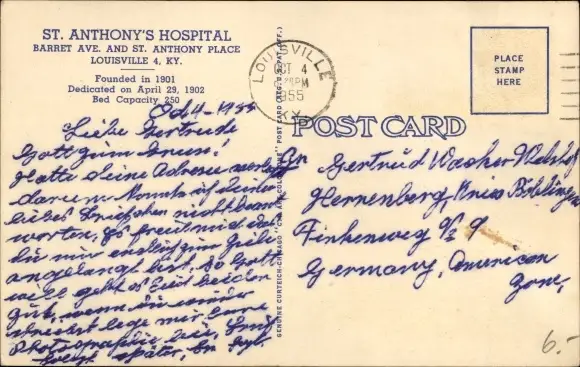 ST. ANTHONY'S HOSPITAL
BARRET AVE. AND ST. ANTHONY PLACE
LOUISVILLE 4, KY.
Founded in 1901
Dedicated on April 29, 1902
Bed Capacity 250
Oct 4 - 1955
Liebe Gertrude
Gott zum Gruss!
Hatte deine Adresse
darum konnte ich Deinen
liebes nicht beant
worten. Es freut mich das
Du nun endlich am Ziele
angelangt bist. So Gott
will geht es Euch beiden
gut, wenn Du
lege mir Eure
Photographie bei,
folgt später,
GENUINE CURTEICH-CHICAGO "C.T. ART-COLORTONE" POST CARD (REG. U.S. PAT. OFF.)
LOUISVILLE
OCT 4
PM
1955
KY.
PLACE
STAMP
HERE
POST CARD
An Gertrud Wacker
Herrenberg, Kreis Böblingen
Finkenweg № 9
Germany, American
Zone,
6.-